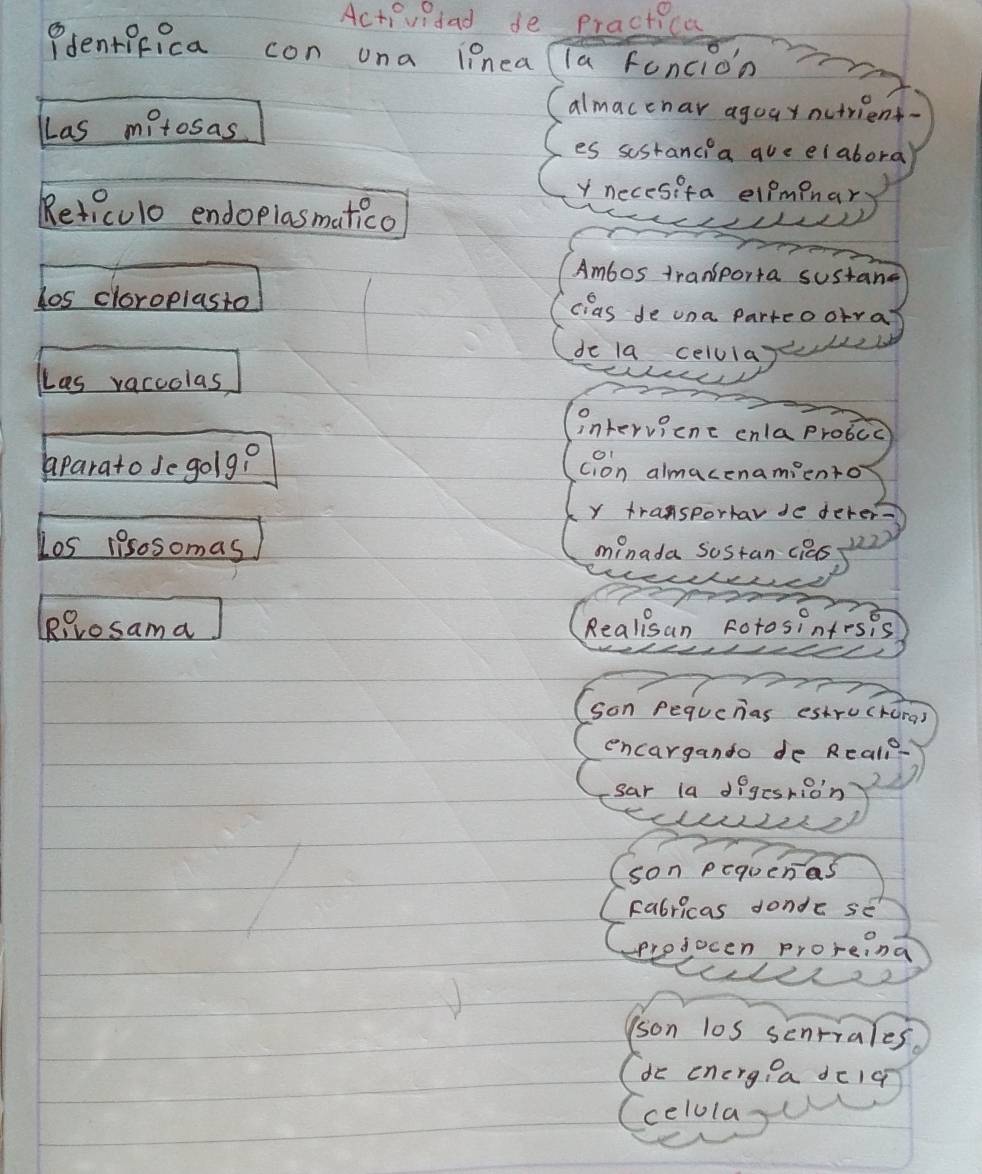 Actividad de Practica
identifica con una linea la Función
Las mitosas
Reticulo endoplasmatico
Los cloroplasto
Las vacuolas
aparato de golgi
Los lisosomas
Rivosama
almacenar agua y nutrient-
es sustancia que elabora
y necesita eliminar
Ambos transporta sustan
cias de una parte o otra
de la celula
interviene en la Probuc
ción almacenamiento
y transportar de deter-
minada sustancias
Realisan Fotosintesis
son Pequeñas estructuras
encargando de Reali-
sar la digestión
son Pequeñas
Fabricas donde se
producen Proteina
son los sentrales
de energia de la
celula